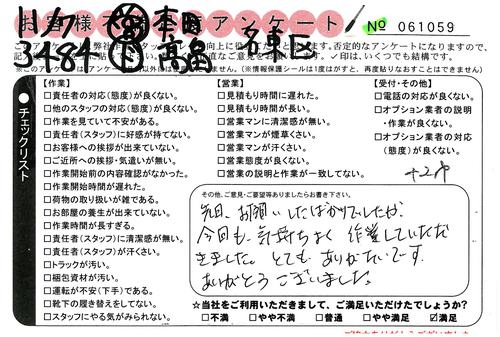 11/7 本田
5484 高角 名東区
お客様不満全面アンケート
No 061059
【作業】
□責任者の対応(態度)が良くない。
□他のスタッフの対応(態度)が良くない。
□作業を見ていて不安がある。
□責任者(スタッフ)に好感が持てない。
□お客様への挨拶が出来ていない。
□ご近所への挨拶・気遣いが無い。
□作業開始前の内容確認がなかった。
□作業開始時間が遅れた。
□荷物の取り扱いが雑である。
□お部屋の養生が出来ていない。
□作業時間が長すぎる。
□責任者(スタッフ)に清潔感が無い。
□責任者(スタッフ)が汗くさい。
□トラックが汚い。
□梱包資材が汚い。
□運転が不安(下手)である。
□靴下の履き替えをしてない。
□スタッフにやる気がみられない。
【営業】
□見積もり時間に遅れた。
□見積もり時間が長い。
□営業マンに清潔感が無い。
□営業マンが煙草くさい。
□営業マンが汗くさい。
□営業態度が良くない。
□営業の説明と作業が一致してない。
【受付・その他】
□電話の対応が良くない。
□オプション業者の説明
・作業が良くない。
□オプション業者の対応
(態度)が良くない。
●チェックリスト
その他、ご意見・ご要望等ありましたらお書き下さい。
先日、お願いしたばかりでしたが、
今回も、気持ちよく作業していただ
きました。とてもありがたいです。
ありがとうございました。
☆当社をご利用いただきまして、ご満足いただけたでしょうか?
□不満 □やや不満 □普通 □やや満足 ☑満足